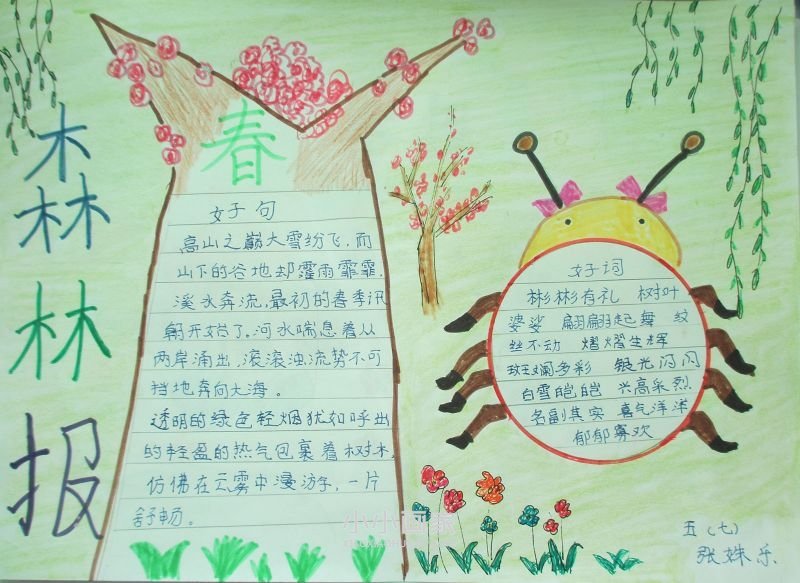 森林报
春
好句
高山之巅大雪纷飞,而
山下的谷地却霪雨霏霏,
溪水奔流,最初的春季汛
朝开始了。河水喘息着从
两岸涌出,滚滚浊流势不可
挡地奔向大海。
透明的绿色轻烟犹如呼出
的轻盈的热气包裹着树木,
仿佛在云雾中漫游,一片
舒畅。
好词
彬彬有礼 树叶
婆娑 翩翩起舞 纹
丝不动 熠熠生辉
斑斓多彩 银光闪闪
白雪皑皑 兴高采烈
名副其实 喜气洋洋
郁郁寡欢
五(七)
张姝乐
小小画家